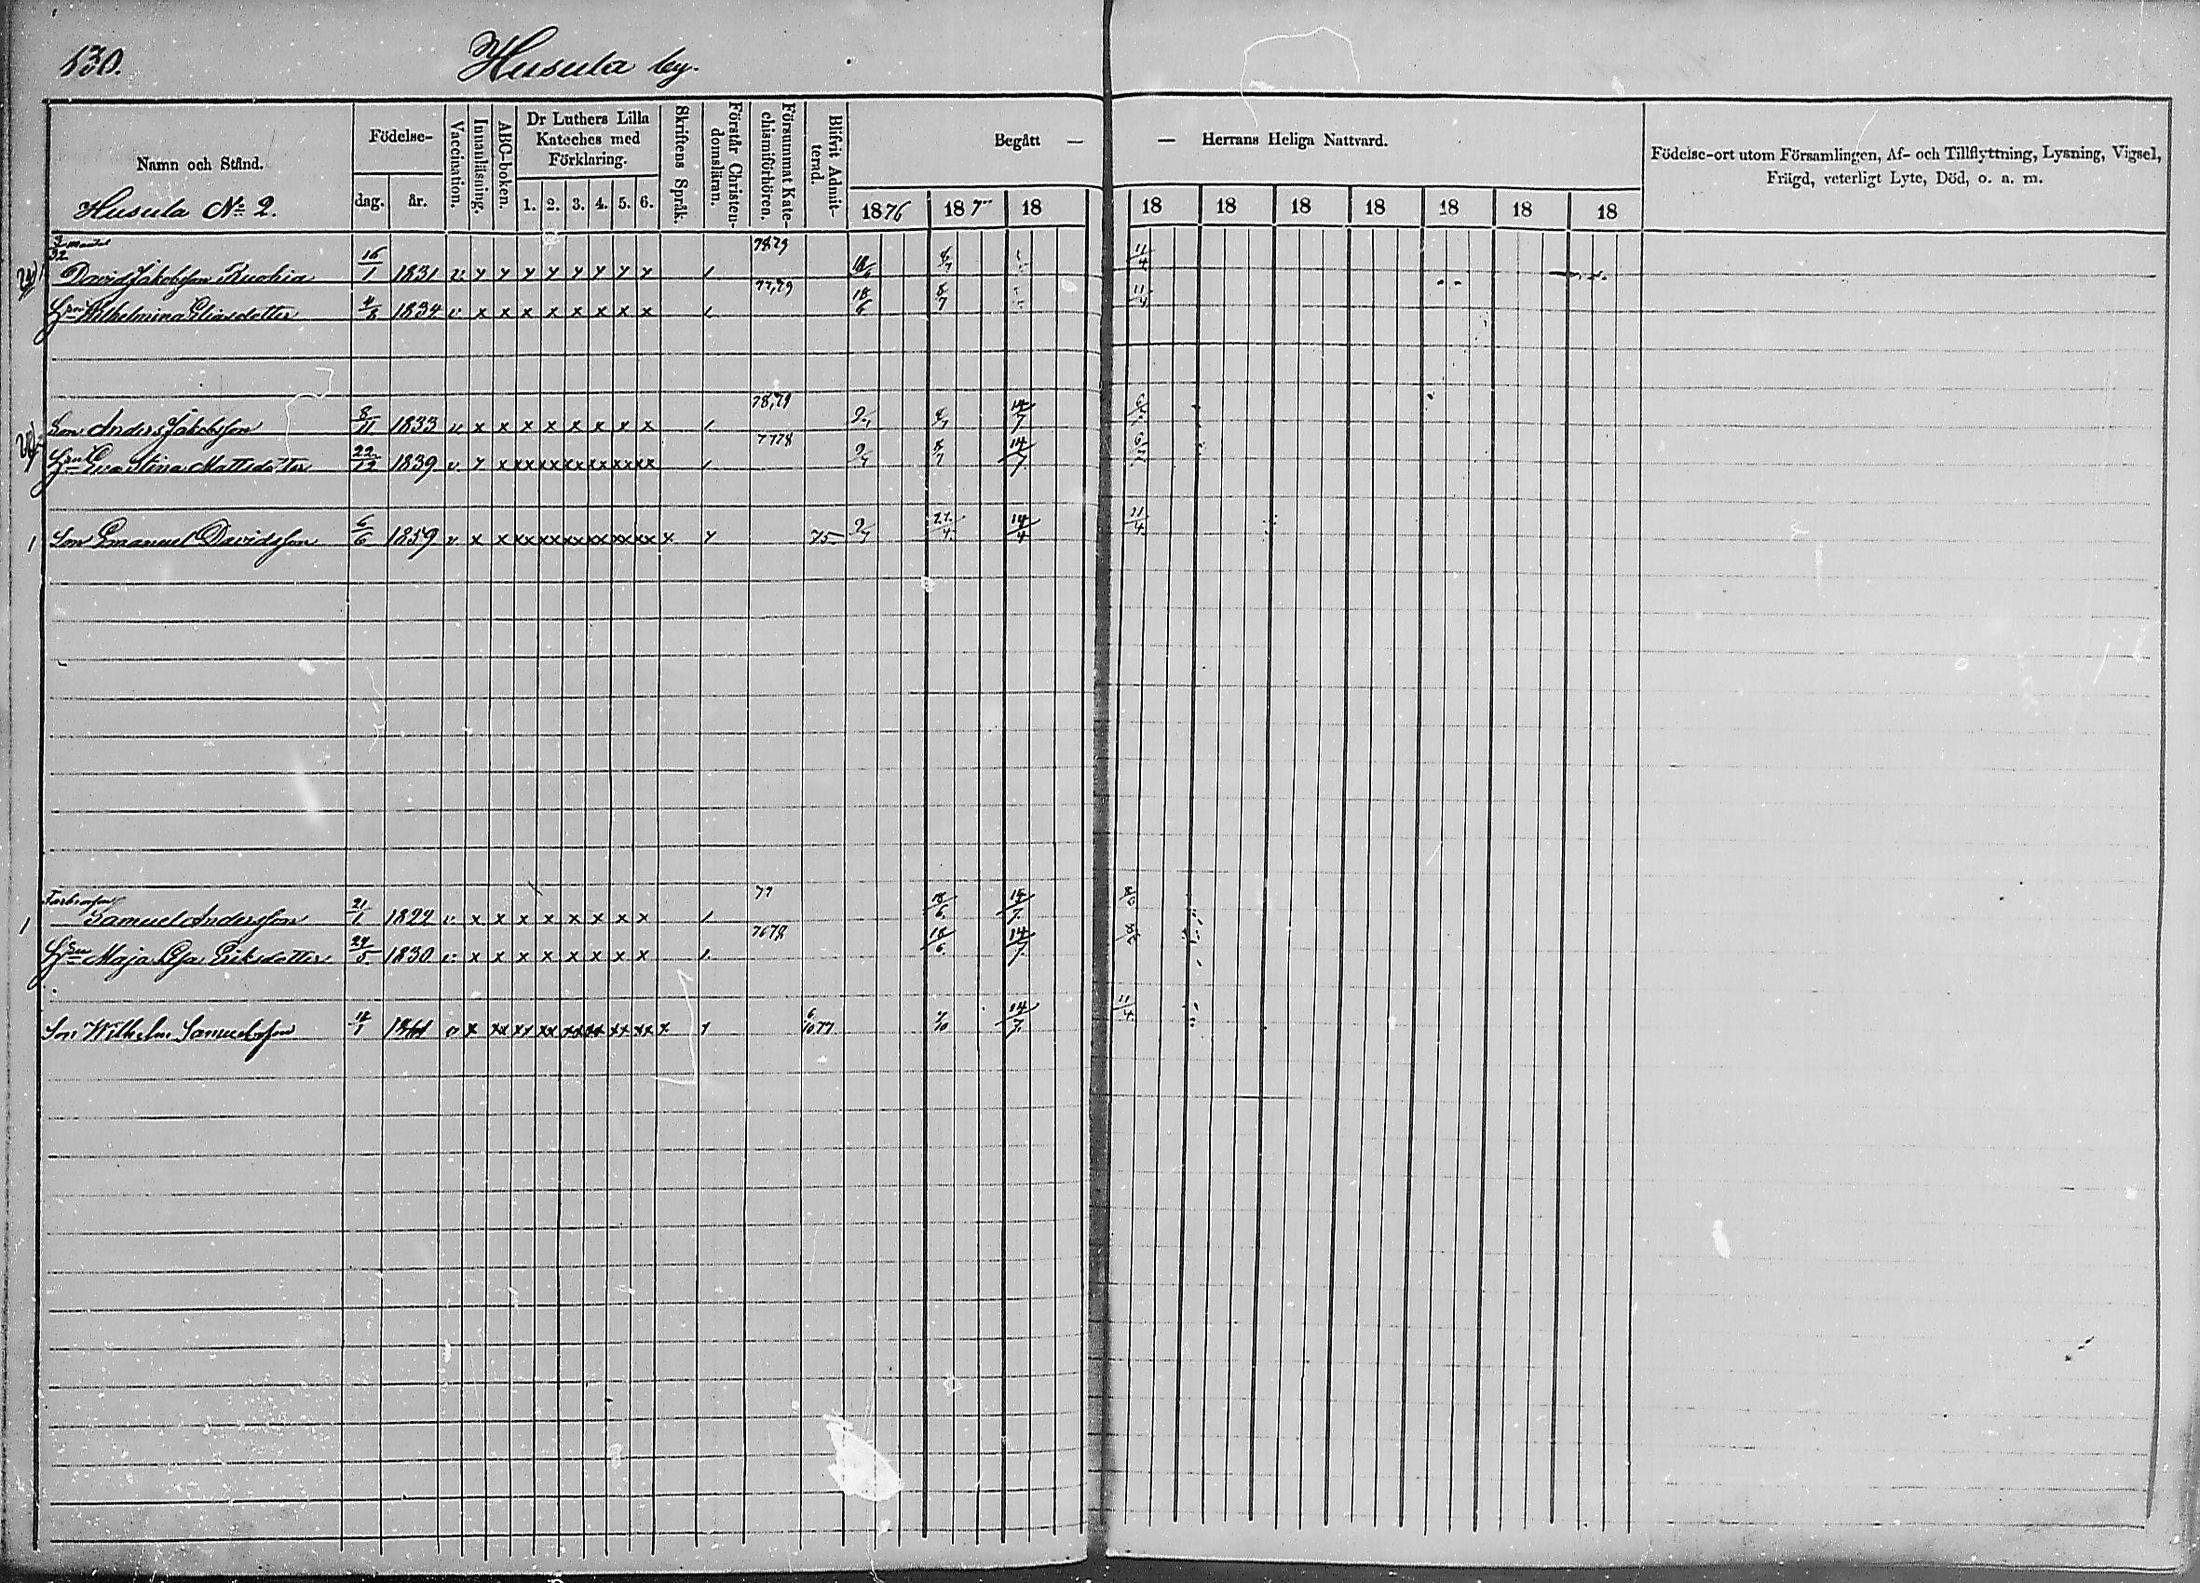 130.
Husula by.
Namn och Stånd.
Födelse-
dag. år.
Vaccination.
Innanläsning.
ABC-boken.
Dr Luthers Lilla Kateches med Förklaring.
1. 2. 3. 4. 5. 6.
Skriftens Språk.
Förstår Christendomsläran.
Försummat Katechismiförhören.
Blifvit Admitterad.
Begått — — Herrans Heliga Nattvard.
1876 187 18 18 18 18 18 18 18 18
Födelse-ort utom Församlingen, Af- och Tillflyttning, Lysning, Vigsel,
Frägd, veterligt Lyte, Död, o. a. m.
Husula No 2.
David Jakobsson 16/1 1831 v x x x x x x x x 78 79 18/6 8/7 11/4
Hru Wilhelmina Eliasdotter 4/8 1834 v x x x x x x x x 77,79 18/6 8/7 11/4
Son Anders Jakobsson 8/11 1833 v x x x x x x x x 78,79 9/7 8/7 14/7
Hru Eva Stina Mattsdotter 22/12 1839 v x x xx xx xx xx xx xx 77 78 9/7 8/7 14/7
1 Son Emanuel Davidsson 6/6 1859 v x x xx xx xx xx xx xx x 75 9/7 22/4 14/4 11/4
Farbrorson
1 Samuel Andersson 21/1 1822 v x x x x x x x x 77 18/6 14/7
Hru Maja Lisa Eriksdotter 24/5 1830 v x x x x x x x x 76 78 18/6 14/7
Son Wilhelm Samuelsson 14/1 v x xx xx xx xx xx xx xx x 6/10 77 7/10 14/7 11/4